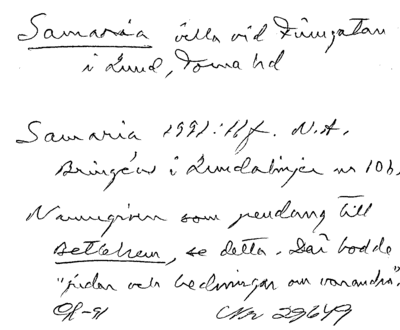 Samaria villa vid Finngatan
i Lund, Torna hd
Samaria 1991: N.A.
Bringéus i Lundalinjer nr 106.
Namngiven som pendang till
Betlehem, se detta. Där bodde
"judar och hedningar om varandra".